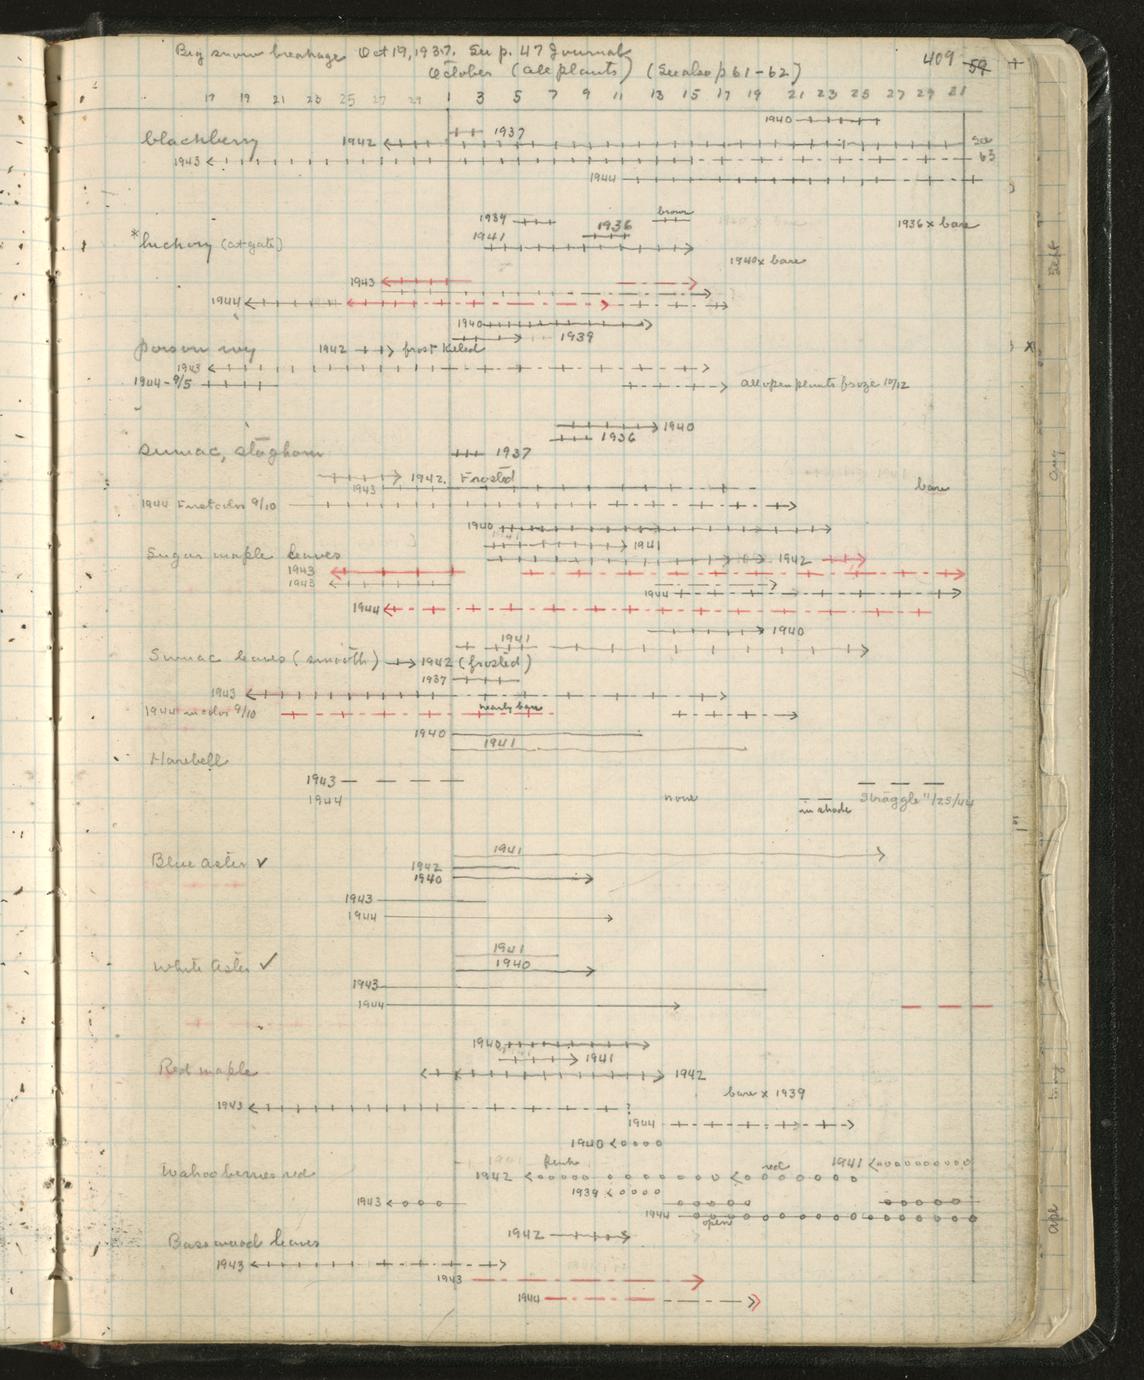 Big snow breakage Oct 19, 1937. See p. 47 Journal
409 59
October (all plants) (See also p 61-62)
17 19 21 23 25 27 29 1 3 5 7 9 11 13 15 17 19 21 23 25 27 29 31
1940
1937
blackberry 1942 See
1943 63
1944
brown
1939 1936 1936 x bare
*hickory (at gate) 1941
1940 x bare
1943
1944
1940
1939
poison ivy 1942 frost killed
1943
1944-9/5 all open plants froze 10/12
1940
1936
sumac, staghorn 1937
1942. Frosted
1943 bare
1944 First color 9/10
1940
1941
Sugar maple leaves 1942
1943
1943 1944
1944
1940
1941
Sumac leaves (smooth) 1942 (frosted)
1937
1943
1944 in color 9/10 nearly bare
1940
1941
Harebell
1943
1944 none in shade Straggle 11/25/44
1941
Blue aster ✓ 1942
1940
1943
1944
1941
White aster ✓ 1940
1943
1944
1940
1941
Red maple 1942
bare x 1939
1943 ?
1944
1940
Pink red 1941
Wahoo berries red 1942
1939
1943
1944 open
Basswood leaves 1942
1943
1943
1944
Sept
Aug
May
Apr